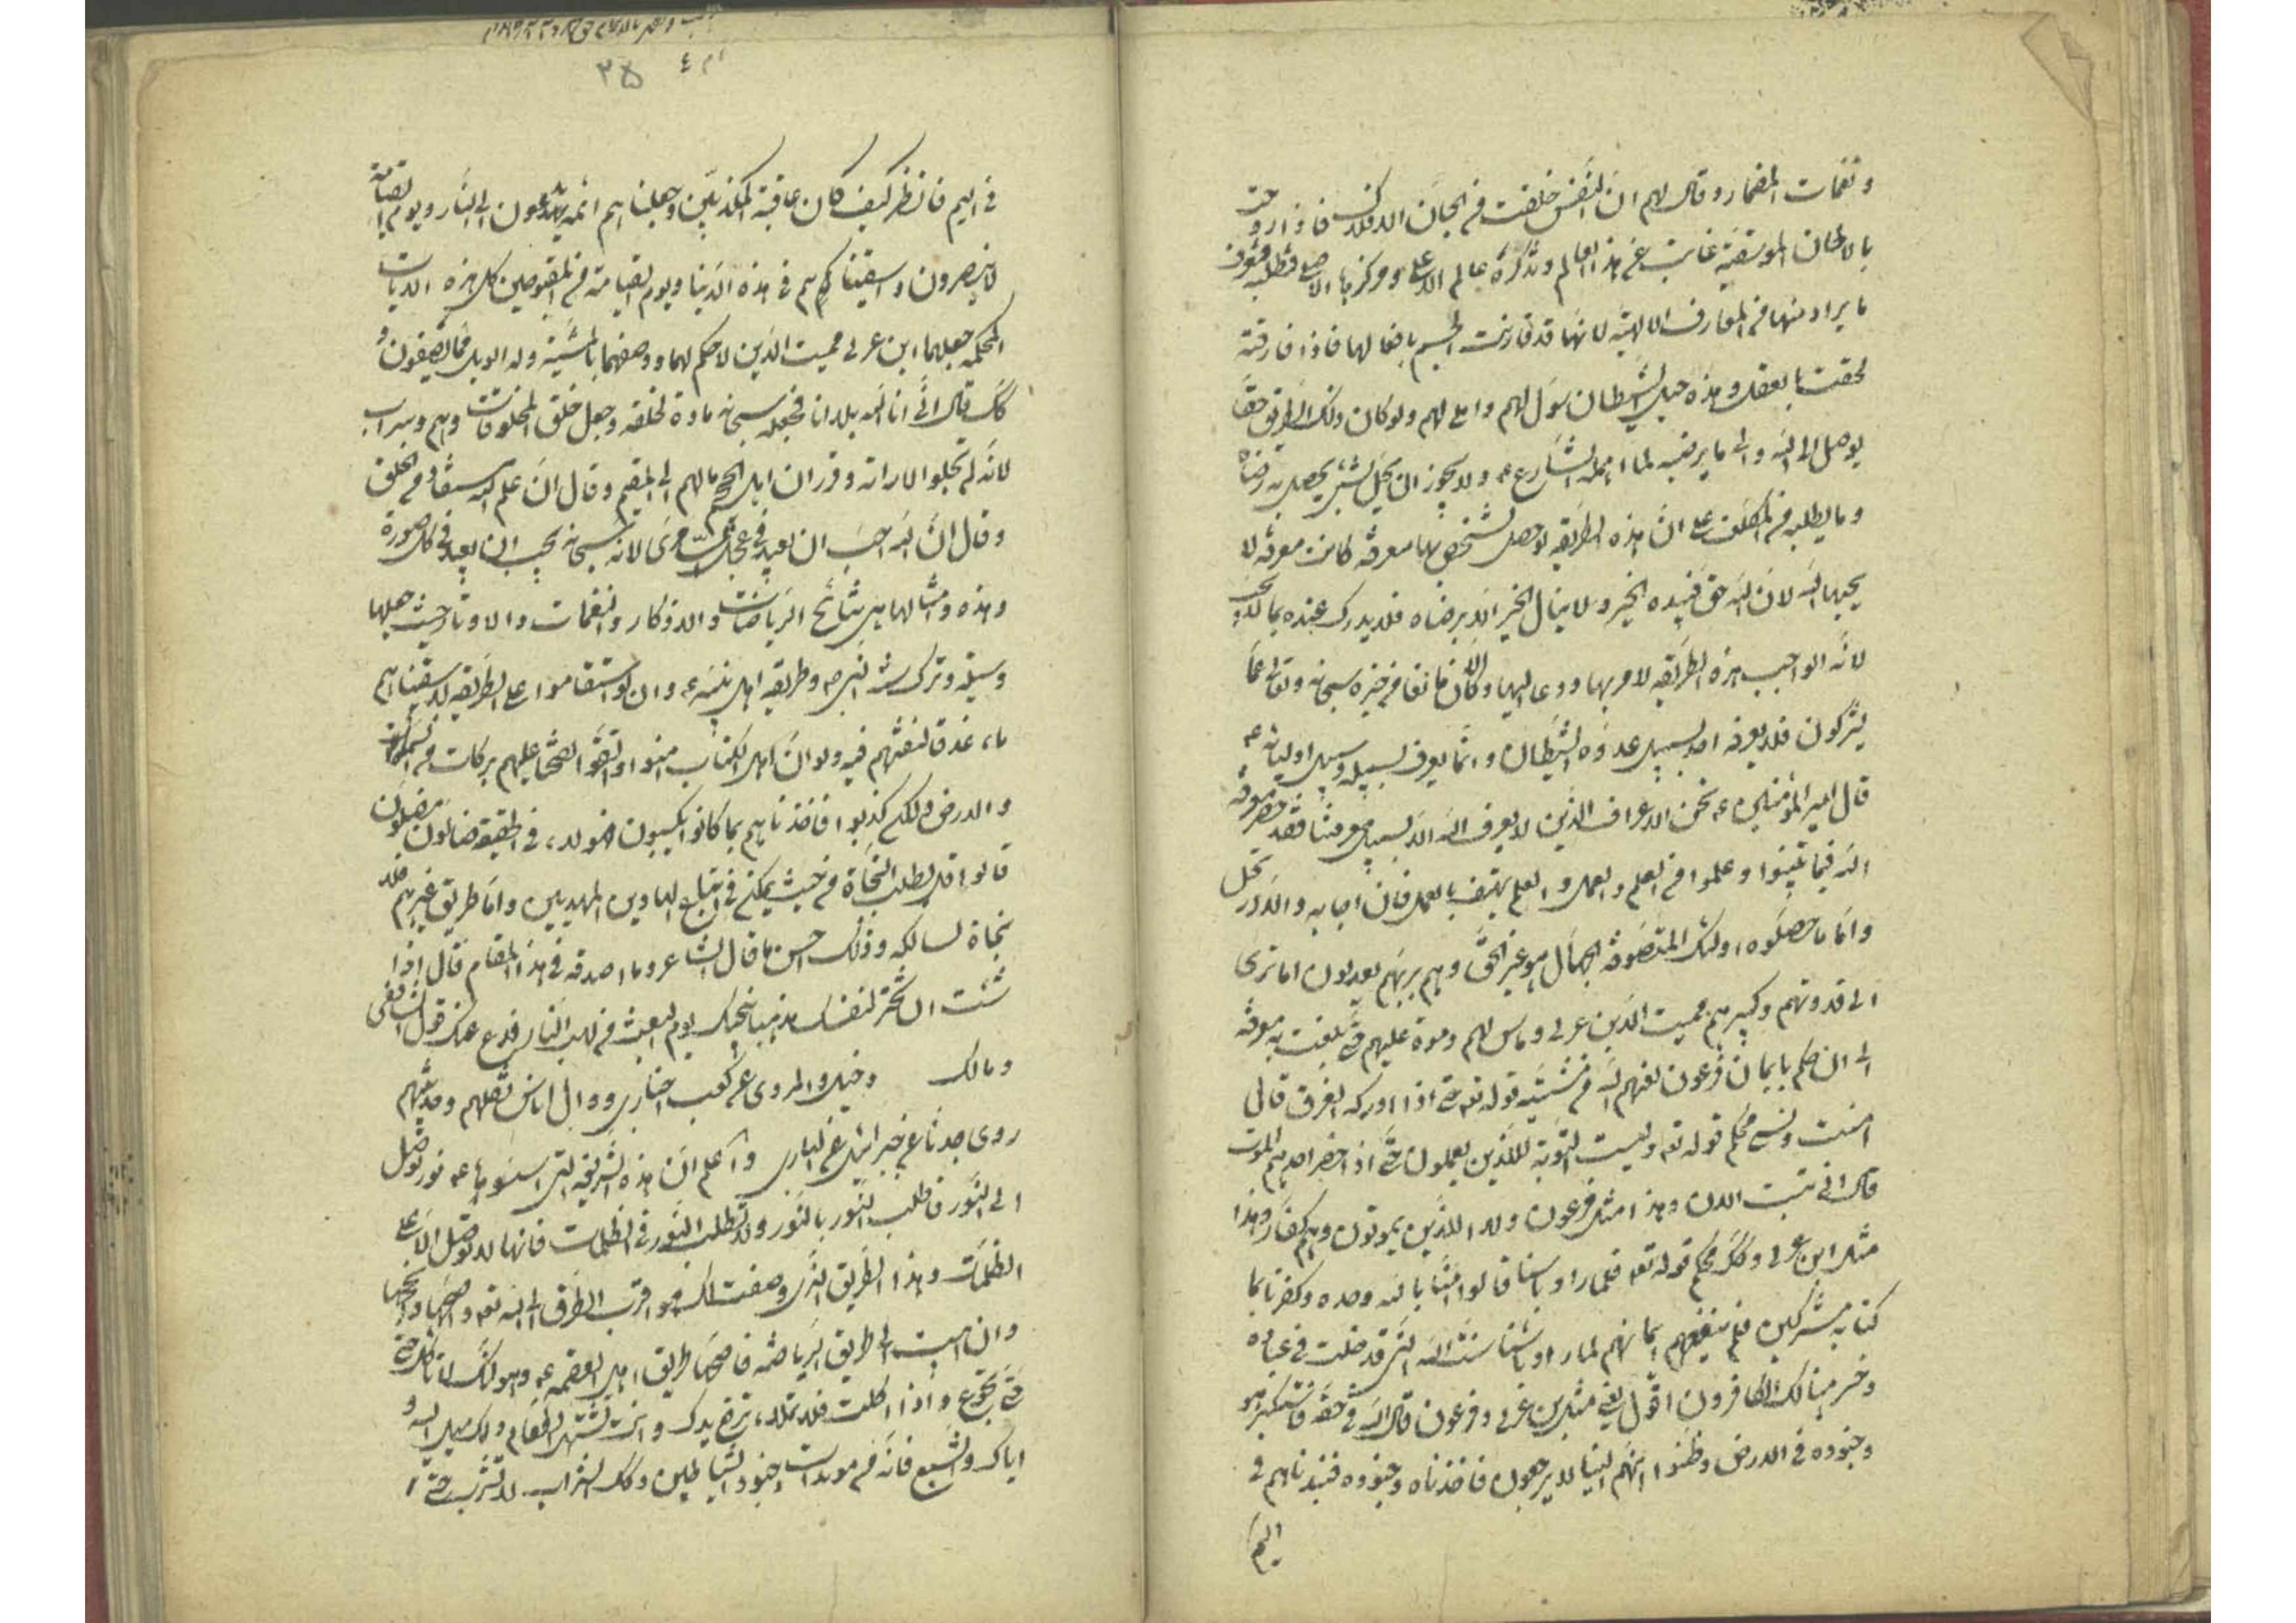 ونغمات المضمار وقال لهم ان النفس خلقت من الحان الافلاك فاذا روحت
بالالحان الموسيقية غابت عن هذا العالم وتذكرة عالم الاعلى ومركزها الاصلي فتطلبه فتعرف
ما يراد منها من المعارف الالهية لانها قد قارنت الجسم بافعالها فاذا فارقته
لحقت بالعقل وهذه حيل الشيطان سول لهم واملى لهم ولو كان ذلك الطريق حقا
يوصل الى الله والى ما يرضيه لما اهمله الشارع ع ولا يجوز ان يخل بشيء يحصل به رضاه
وما يطلبه من المكلف على ان هذه الطريقة لو حصل الشخص بها معرفة كانت معرفة لا
يحبها الله لان الله حق فبيده الخير ولا ينال الخير الا برضاه فلا يدرك عنده بما لا يحب
لانه الواجب هذه الطريقة لامر بها ودعا اليها والا لكان مانعا من خيره سبحانه وتعالى عما
يشركون فلا يعرف الله بسبيل عدوه الشيطان وانما يعرف بسبيله وسبيل اوليائه ع
قال امير المؤمنين ع نحن الاعراف الذين لا يعرف الله الا بسبيل معرفتنا فقد حصر معرفة
الله فيما بينوا وعلموا من العلم والعمل والعلم يهتف بالعمل فان اجابه والا ارتحل
واما ما حصلوه اولئك المتصوفة الجهال هو غير الحق وهم بربهم يعدلون اما ترى
الى قدوتهم وكبيرهم مميت الدين عربي وما سن لهم وموه عليهم حتى بلغت به معرفة
الى ان حكم بايمان فرعون لعنهم الله من مشتبه قوله تعالى حتى اذا ادركه الغرق قال
امنت ونسي محكم قوله تع وليست التوبة للذين يعملون حتى اذا حضر احدهم الموت
قال اني تبت الان وهذا مثل فرعون ولا الذين يموتون وهم كفار وهذا
مثل ابن عربي وكك محكم قوله تع فلما راوا باسنا قالوا امنا بالله وحده وكفرنا بما
كنا به مشركين فلم ينفعهم ايمانهم لما راوا باسنا سنت الله التي قد خلت في عباده
وخسر هنالك الكافرون اقول يعني مثل ابن عربي وفرعون قال الله في حقه فاستكبر هو
وجنوده في الارض وظنوا انهم الينا لا يرجعون فاخذناه وجنوده فنبذناهم في
اليم
٢٥
في اليم فانظر كيف كان عاقبة المكذبين وجعلناهم ائمة يدعون الى النار ويوم القيامة
لا ينصرون واسقيناكم هم في هذه الدنيا ويوم القيامة من المقبوحين كل هذه الايات
المحكمة جعلها ابن عربي مميت الدين لا حكم لهما ووصفهما بالمشية وله الويل مما يصفون و
كك قال اني انا الله بلا انا فجعله سبحانه مادة لخلقه وجعل خلق المخلوقات وهم وسراب
لانه لم تجلوا الا راته وقرر ان اهل الجحيم مالهم الى النعيم وقال ان علم الله مستفاد من الخلق
وقال ان الله احب ان يعبد في عجل السامري لانه سبحانه يحب ان يعبد في كل صورة
وهذه وامثالها هي نتائج الرياضات والاذكار والنغمات والاوتار حيث جعلها
وسيلة وترك سنة النبي ص وطريقة اهل بيته ع وان لو استقاموا على الطريقة لاسقيناهم
ماء غدقا لنفتنهم فيه ولو ان اهل الكتاب امنوا واتقوا لفتحنا عليهم بركات من السماء
والارض ولكن كذبوا فاخذناهم بما كانوا يكسبون فهؤلاء في الحقيقة ضالون مضلون
قالوا قد يطلب النجاة من حيث يمكن في اتباع الهادين المهديين واما طريق غيرهم فلا
نجاة لسالكه وذلك احسن ما قال الشاعر وما اصدقه في هذا المقام قال اذا
شئت ان تختر لنفسك مذهبا ينجيك يوم البعث من لهب النار فدع عنك قول الشافعي
ومالك وحنبل والمروي عن كعب احبار ووال اناس نقلهم وحديثهم
روى جدنا عن جبرائيل عن الباري واعلم ان هذه الشريفة التي اسسوها ع نور توصل
الى النور فاطلب النور بالنور ولا تطلب النور في الظلمات فانها لا توصل الا الى
الظلمات وهذا الطريق الذي وصفت لك هو اقرب الطرق الى الله تع واصحها وانجحها
وان احببت الى طريق الرياضة فاصحها طريق اهل العصمة ع وهو انك لا تاكل حتى
حتى تجوع واذا اكلت فلا تملاء ترفع يدك وانت تشتهي الطعام ولك ميل اليه و
اياك والشبع فانه من مولدات جنود الشياطين وكك الشراب لا تشرب حتى